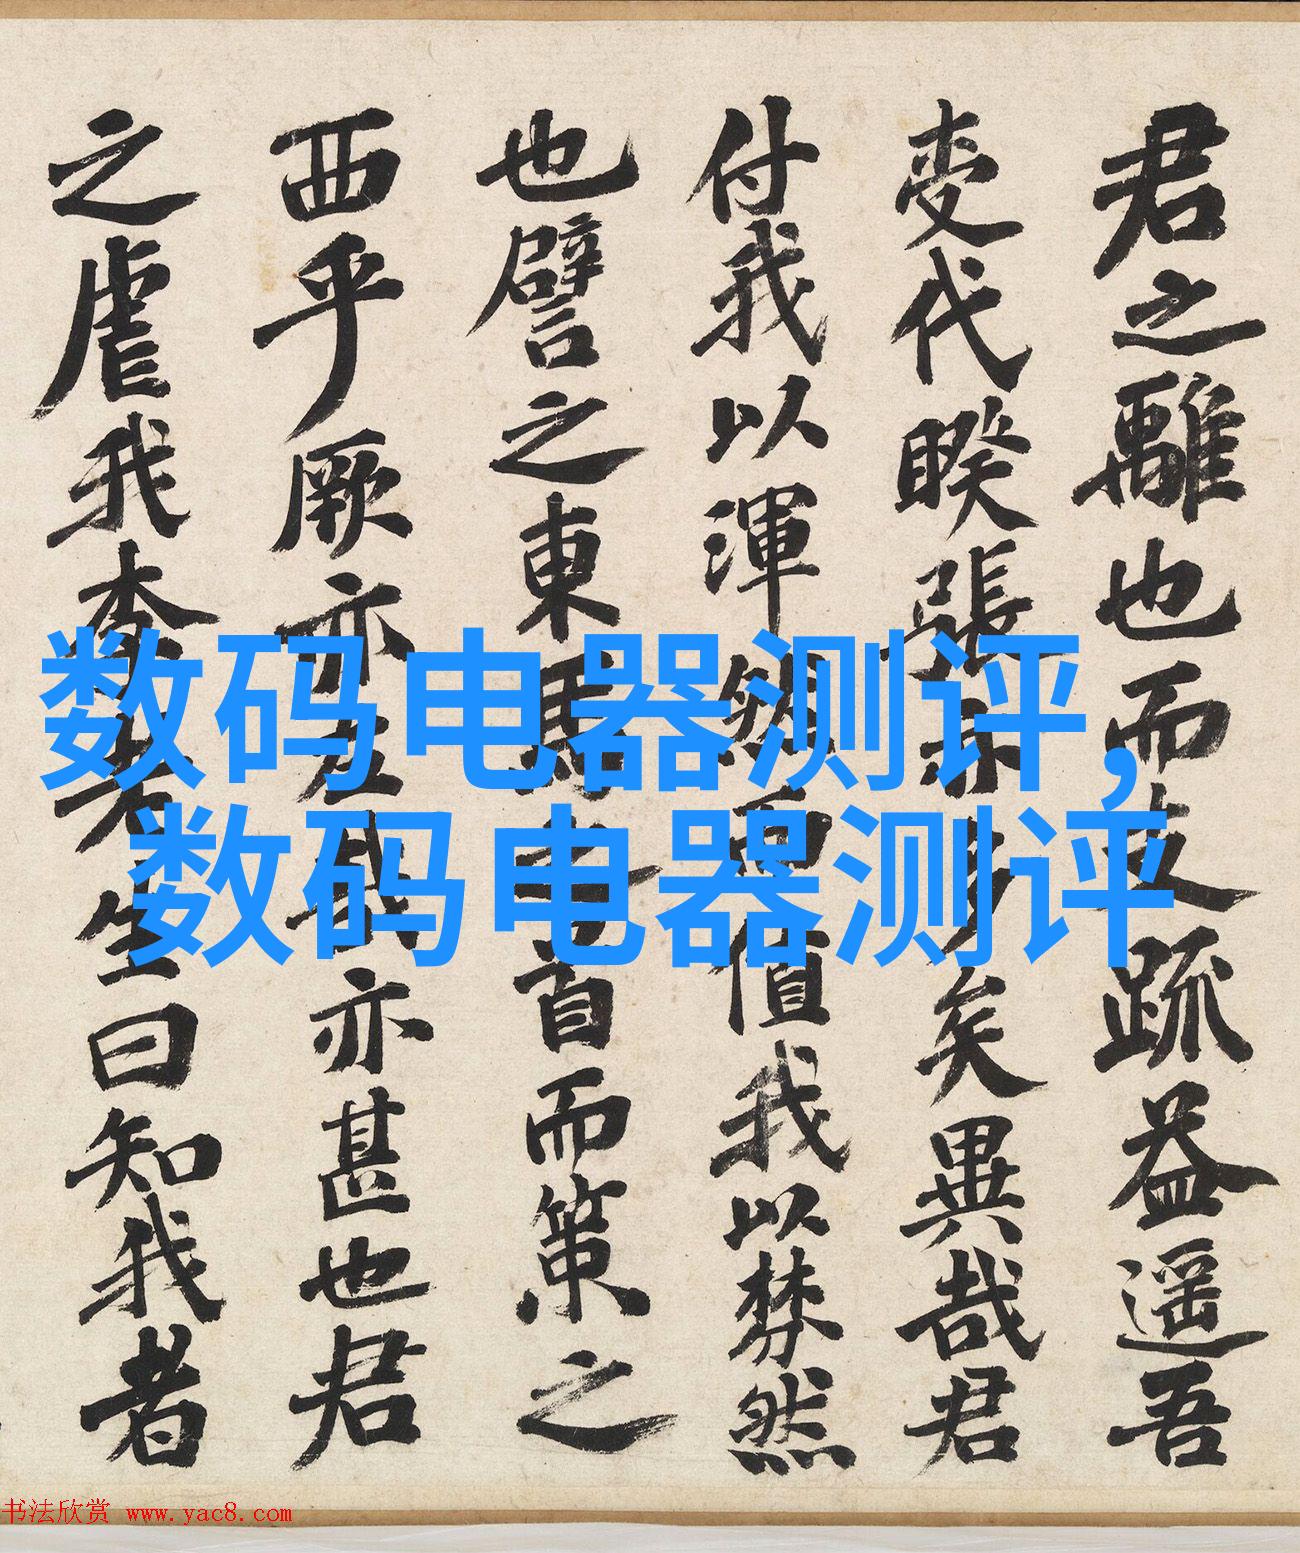 君之離也而支疏益遥吾
变代暌張亦多矣異哉君
付我以渾然而值我以棼然
也譬之東馬之首而策之
西乎厥亦左我亦甚也君
之虐我李先生曰知我者
数码电器测评,
数码电器测评
书法欣赏 www.yac8.com